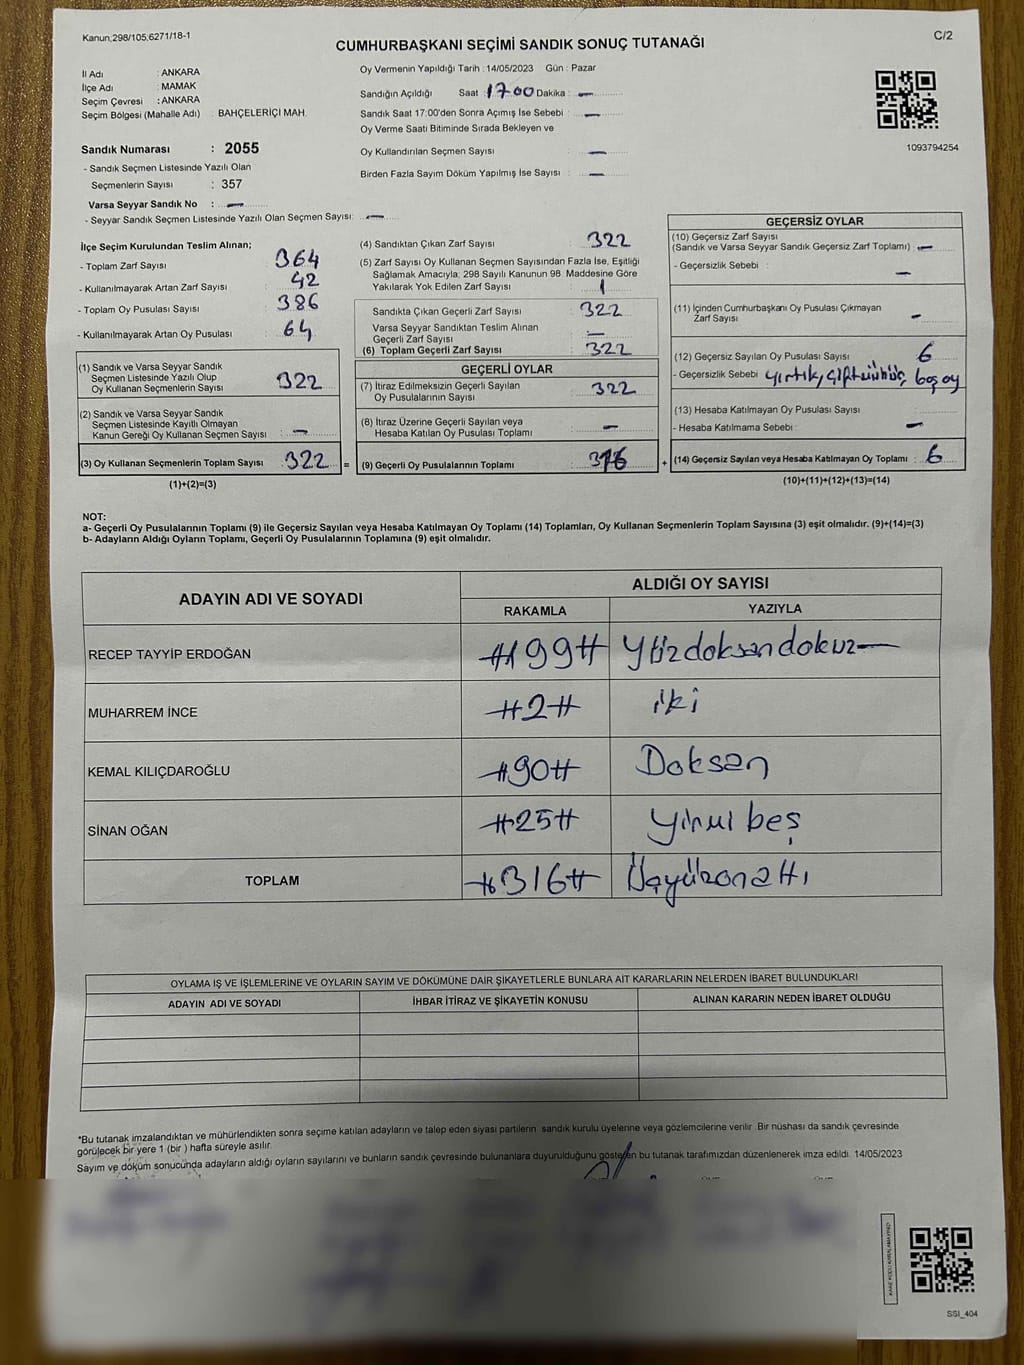 Kanun;298/105,6271/18-1
C/2
CUMHURBAŞKANI SEÇİMİ SANDIK SONUÇ TUTANAĞI
İl Adı : ANKARA
İlçe Adı : MAMAK
Seçim Çevresi : ANKARA
Seçim Bölgesi (Mahalle Adı) : BAHÇELERİÇİ MAH.
Sandık Numarası : 2055
- Sandık Seçmen Listesinde Yazılı Olan
Seçmenlerin Sayısı : 357
Varsa Seyyar Sandık No : —
- Seyyar Sandık Seçmen Listesinde Yazılı Olan Seçmen Sayısı: —
Oy Vermenin Yapıldığı Tarih : 14/05/2023 Gün : Pazar
Sandığın Açıldığı Saat : 17.00 Dakika : —
Sandık Saat 17:00'den Sonra Açımış İse Sebebi : —
Oy Verme Saati Bitiminde Sırada Bekleyen ve
Oy Kullandırılan Seçmen Sayısı : —
Birden Fazla Sayım Döküm Yapılmış İse Sayısı : —
1093794254
İlçe Seçim Kurulundan Teslim Alınan;
- Toplam Zarf Sayısı : 364
- Kullanılmayarak Artan Zarf Sayısı : 42
- Toplam Oy Pusulası Sayısı : 386
- Kullanılmayarak Artan Oy Pusulası : 64
(1) Sandık ve Varsa Seyyar Sandık
Seçmen Listesinde Yazılı Olup
Oy Kullanan Seçmenlerin Sayısı : 322
(2) Sandık ve Varsa Seyyar Sandık
Seçmen Listesinde Kayıtlı Olmayan
Kanun Gereği Oy Kullanan Seçmen Sayısı : —
(3) Oy Kullanan Seçmenlerin Toplam Sayısı : 322 =
(1)+(2)=(3)
(4) Sandıktan Çıkan Zarf Sayısı : 322
(5) Zarf Sayısı Oy Kullanan Seçmen Sayısından Fazla İse, Eşitliği
Sağlamak Amacıyla; 298 Sayılı Kanunun 98. Maddesine Göre
Yakılarak Yok Edilen Zarf Sayısı :
Sandıkta Çıkan Geçerli Zarf Sayısı : 322
Varsa Seyyar Sandıktan Teslim Alınan
Geçerli Zarf Sayısı : —
(6) Toplam Geçerli Zarf Sayısı : 322
GEÇERLİ OYLAR
(7) İtiraz Edilmeksizin Geçerli Sayılan
Oy Pusulalarının Sayısı : 322
(8) İtiraz Üzerine Geçerli Sayılan veya
Hesaba Katılan Oy Pusulası Toplamı : —
(9) Geçerli Oy Pusulalarının Toplamı : 316 +
GEÇERSİZ OYLAR
(10) Geçersiz Zarf Sayısı
(Sandık ve Varsa Seyyar Sandık Geçersiz Zarf Toplamı) : —
- Geçersizlik Sebebi : —
(11) İçinden Cumhurbaşkanı Oy Pusulası Çıkmayan
Zarf Sayısı : —
(12) Geçersiz Sayılan Oy Pusulası Sayısı : 6
- Geçersizlik Sebebi : yırtık, çift mühür, boş oy
(13) Hesaba Katılmayan Oy Pusulası Sayısı :
- Hesaba Katılmama Sebebi : —
(14) Geçersiz Sayılan veya Hesaba Katılmayan Oy Toplamı : 6
(10)+(11)+(12)+(13)=(14)
NOT:
a- Geçerli Oy Pusulalarının Toplamı (9) ile Geçersiz Sayılan veya Hesaba Katılmayan Oy Toplamı (14) Toplamları, Oy Kullanan Seçmenlerin Toplam Sayısına (3) eşit olmalıdır. (9)+(14)=(3)
b- Adayların Aldığı Oyların Toplamı, Geçerli Oy Pusulalarının Toplamına (9) eşit olmalıdır.
ADAYIN ADI VE SOYADI
ALDIĞI OY SAYISI
RAKAMLA YAZIYLA
RECEP TAYYİP ERDOĞAN #199# Yüzdoksandokuz—
MUHARREM İNCE #2# iki
KEMAL KILIÇDAROĞLU #90# Doksan
SİNAN OĞAN #25# Yirmi beş
TOPLAM #316# Üçyüzonaltı
OYLAMA İŞ VE İŞLEMLERİNE VE OYLARIN SAYIM VE DÖKÜMÜNE DAİR ŞİKAYETLERLE BUNLARA AİT KARARLARIN NELERDEN İBARET BULUNDUKLARI
ADAYIN ADI VE SOYADI İHBAR İTİRAZ VE ŞİKAYETİN KONUSU ALINAN KARARIN NEDEN İBARET OLDUĞU
*Bu tutanak imzalandıktan ve mühürlendikten sonra seçime katılan adayların ve talep eden siyasi partilerin sandık kurulu üyelerine veya gözlemcilerine verilir. Bir nüshası da sandık çevresinde
görülecek bir yere 1 (bir ) hafta süreyle asılır.
Sayım ve döküm sonucunda adayların aldığı oyların sayılarını ve bunların sandık çevresinde bulunanlara duyurulduğunu gösteren bu tutanak tarafımızdan düzenlenerek imza edildi. 14/05/2023
SSI_404